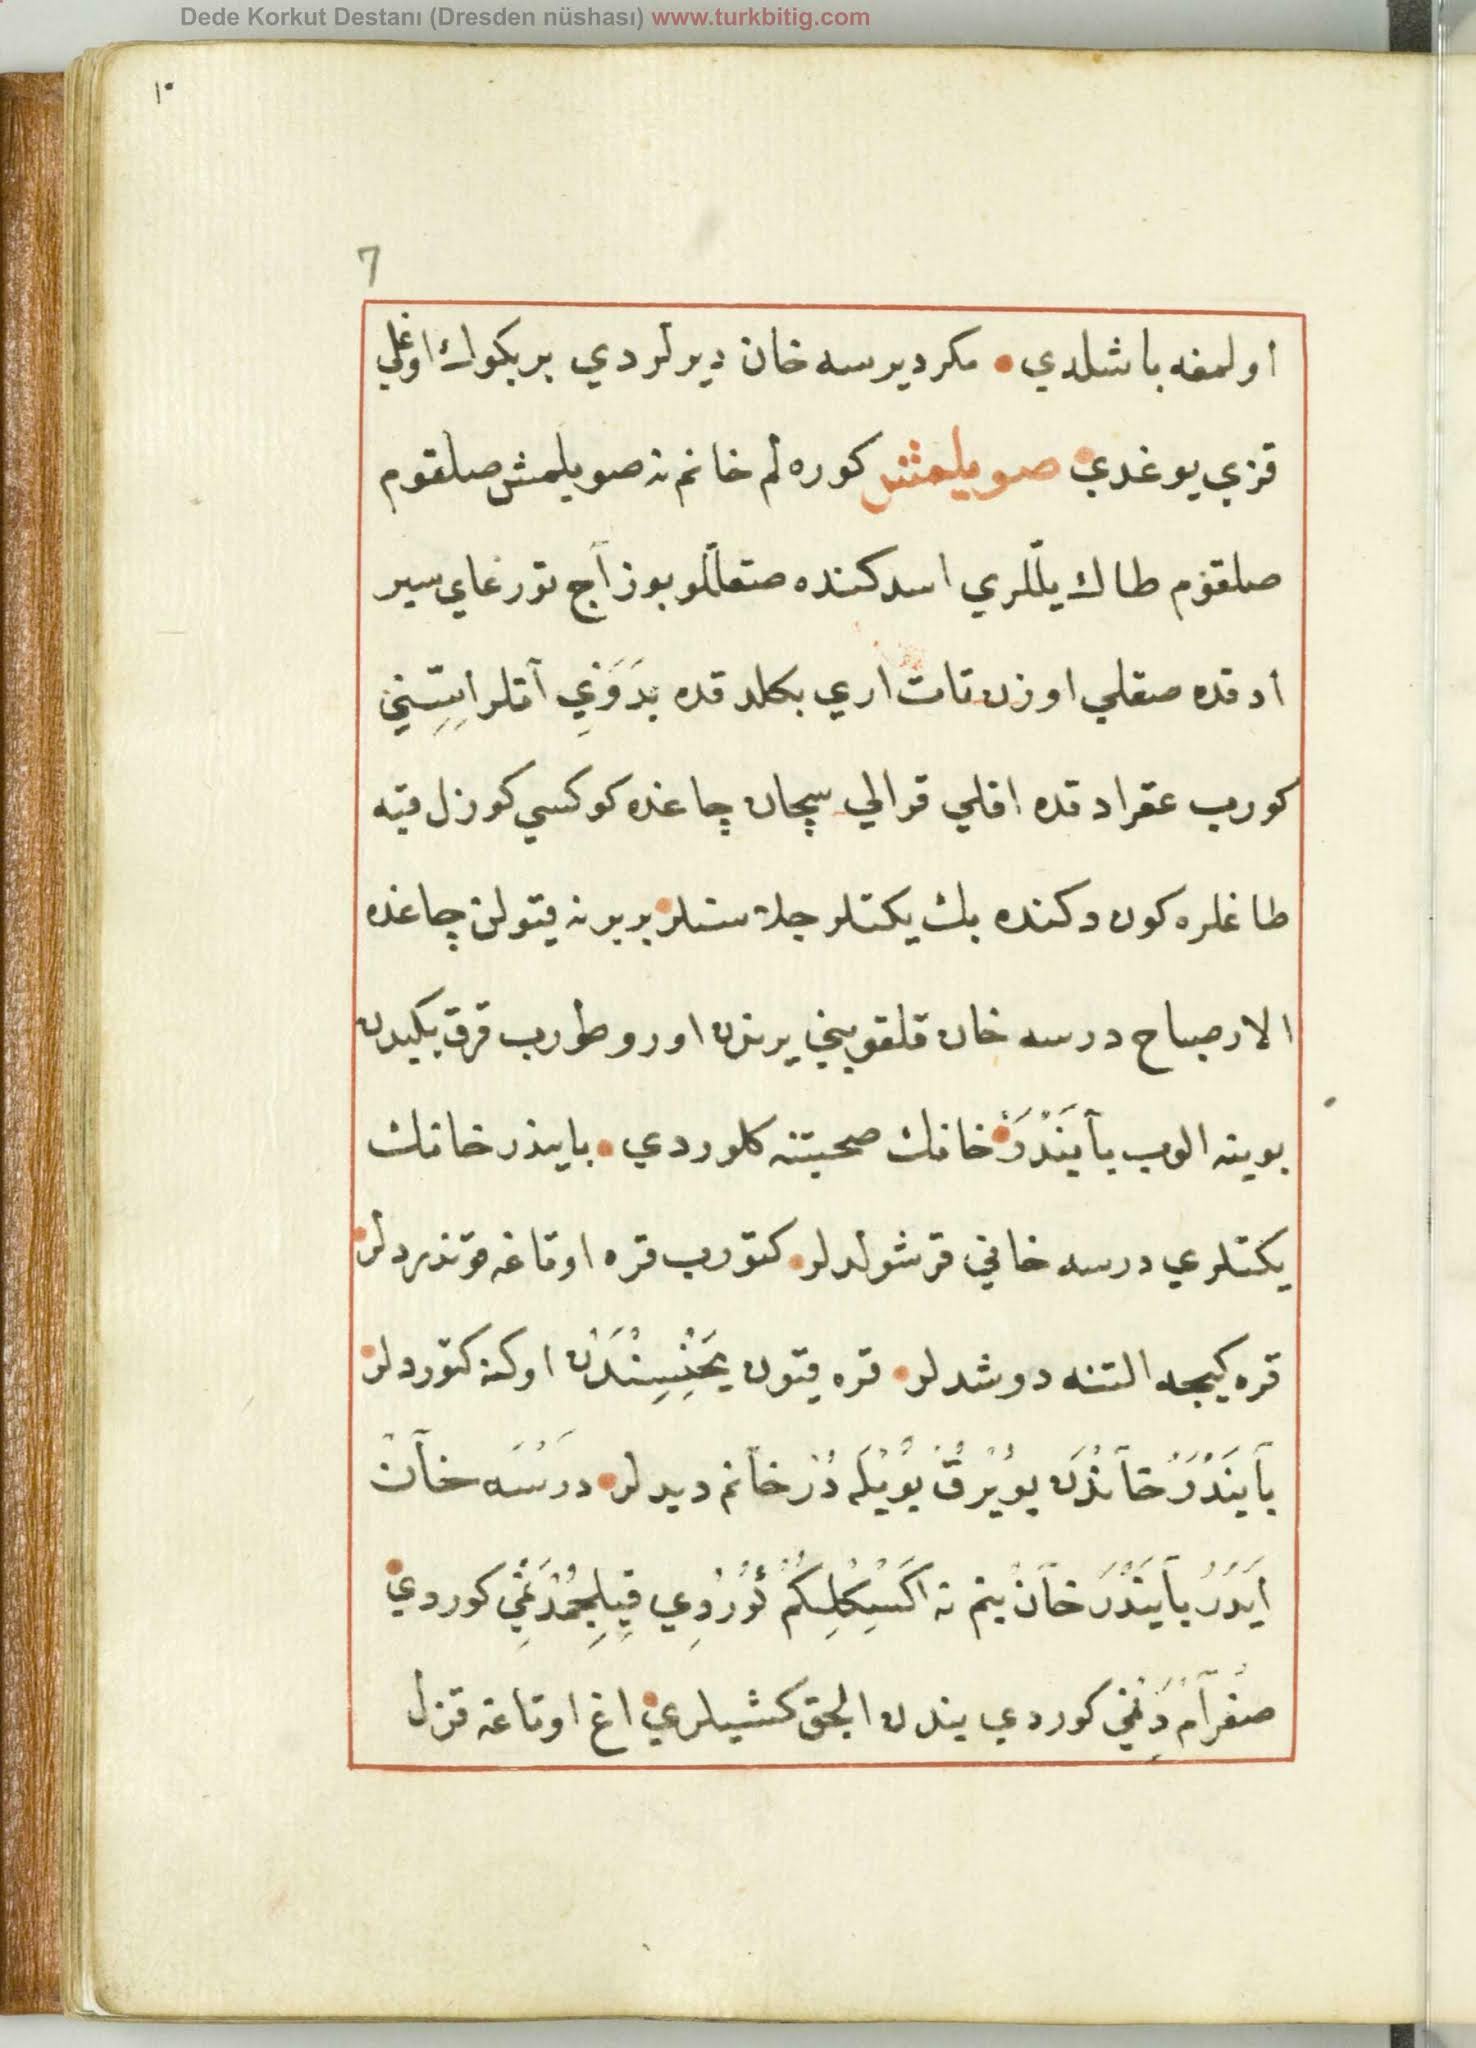 Dede Korkut Destanı (Dresden nüshası) www.turkbitig.com
١٠
7
اولمغه باشلدي • مكر ديرسه خان ديرلردي بر بكوك اوغلي
قزي يوغدي صويلمش كوره لم خانم نه صويلمش صلقوم
صلقوم طاك يللري اسدكنده صقللو بوز آج تورغاي سير
ادقده صقلي اوزن تات اري بكلدقده بَدَوَيِ آتلر
كورب عقرادقده اقلي قرالي سچلن چاغده كوكسي كوزل قيه
طاغلره كون دكنده بك يكتلر جلاسنلر بر برنه قيتولن چاغده
الار صباح درسه خان قلقوبني يرندن اورو طورب قرق يكيدن
بوينه الوب بآيَنْدَرْ خانك صحبتنه كلوردي • بايندر خانك
يكتلري درسه خاني قرشولدلر • كتورب قره اوتاغه قوندردلر
قره كيجه التنه دوشدلر • قره قيون يَخْنِسِنْدَنْ اوكنه كتوردلر
بآيَنْدَرْ خآنْدَن بويْرقْ بُويْلَه دُرْ خآنم ديدلر • دَرْسَه خآن
اَيدَرْ بآيَنْدَرْ خآن بنم نه اَكْسِكْلِكُمْ كوردي قِلِجُمْدَنمي كوردي
صُفْرآمْدَنمي كوردي بندن الجق كشيلري اغ اوتاغه قزل